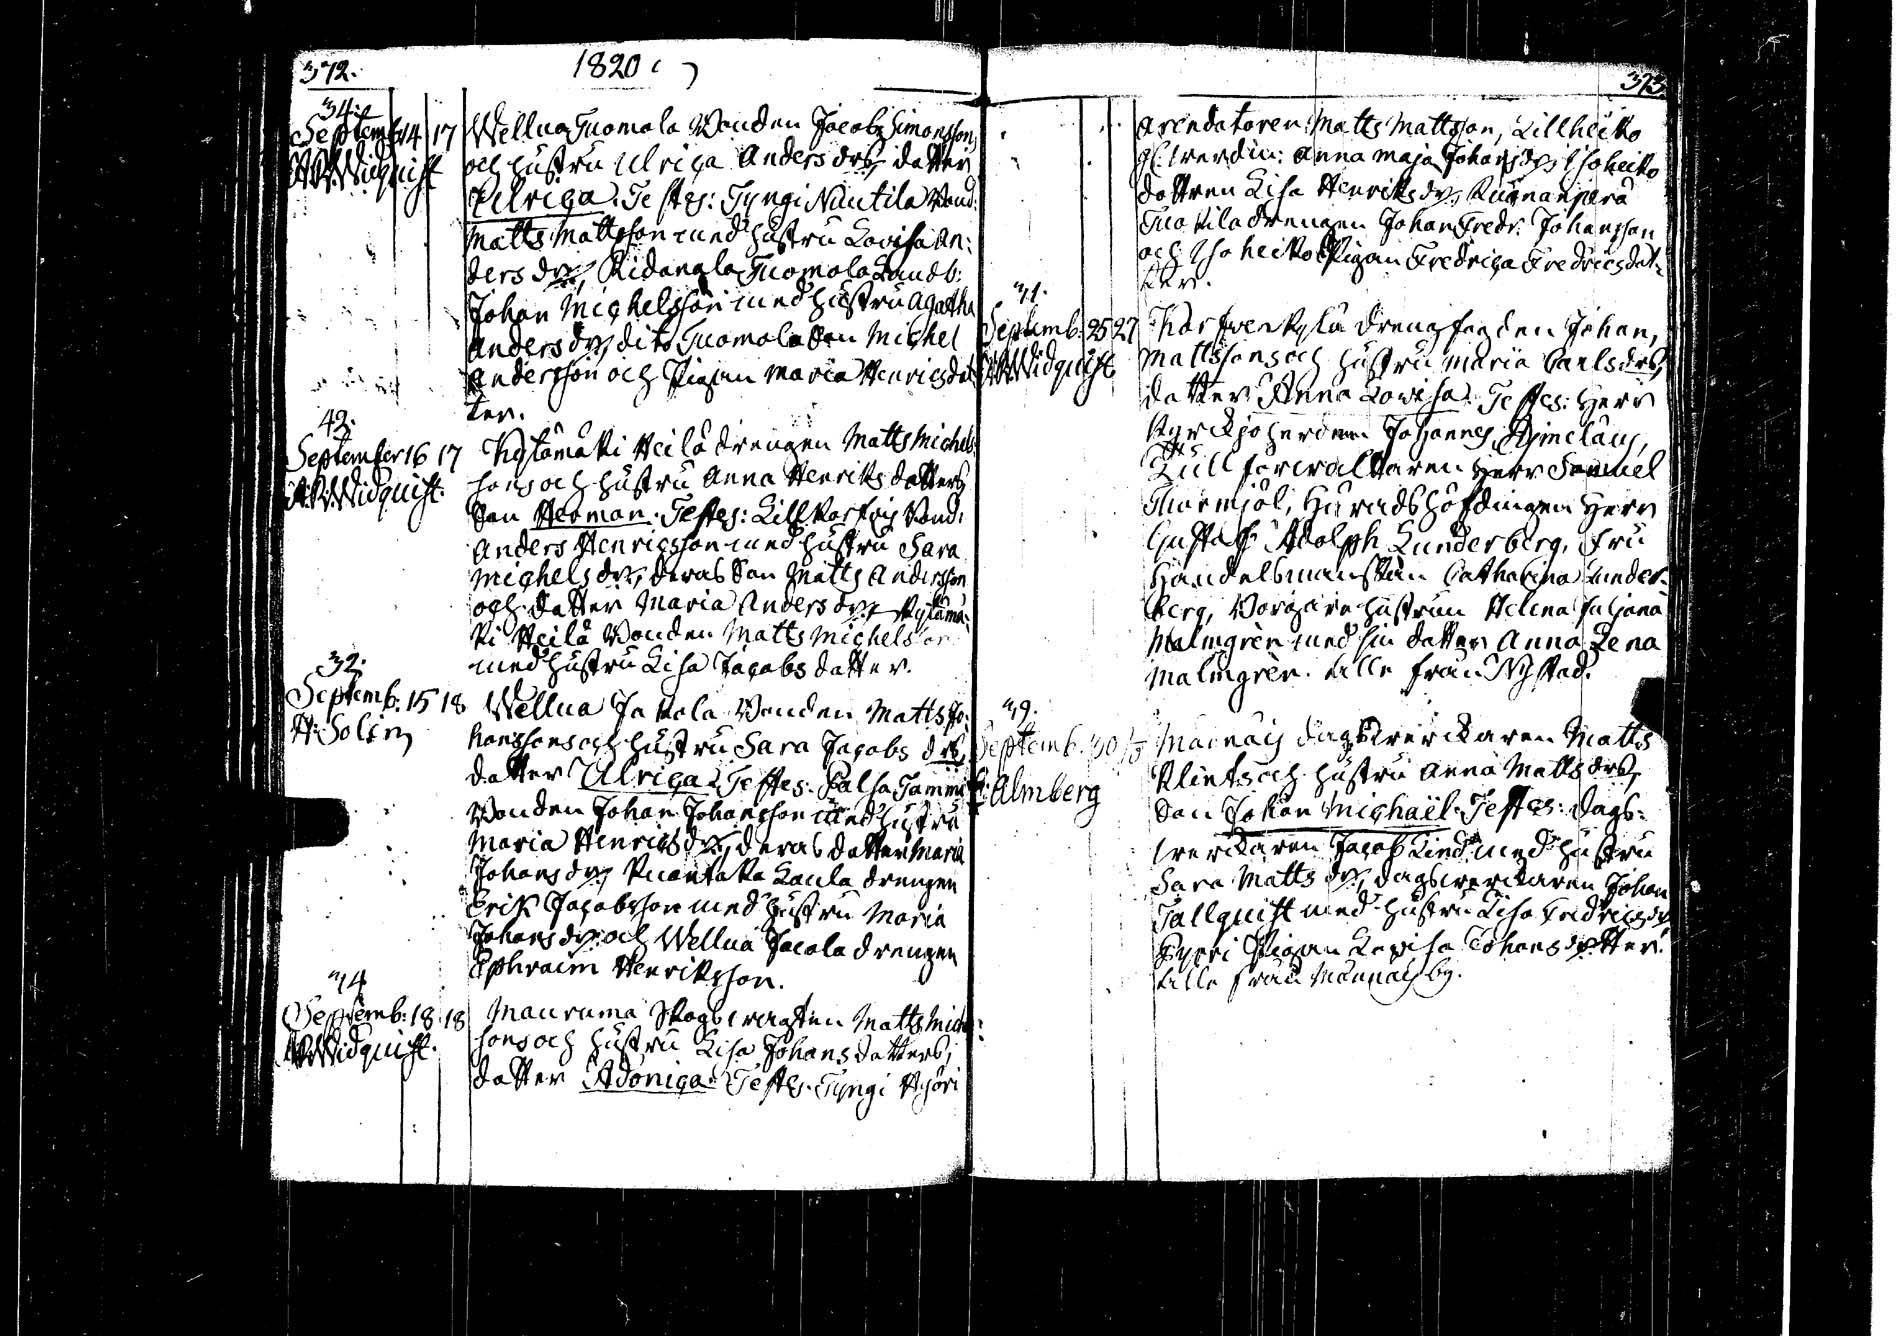 372.
1820.
34.
Septemb. 14 17
Wellua Tuomola Bonden Jacob Simonssons
och hustru Ulrica Anders drs, datter
Ulrica. Testes: Tyngi Nuutila Bond:
Matts Mattsson med hustru Lovisa An:
ders dr, Kidangla Tuomola Landb:
Johan Michelsson med hustru Agatha
Anders dr, dito Tuomola Son Michel
Andersson och Pigan Maria Henricsdat
ter.
A: Widquist
42.
September 16 17
A: Widquist.
Kylämäki Heilä drengen Matts Michels
sons och hustru Anna Henriks datters
Son Herman. Testes: Lill Korfois Bond:
Anders Henricsson med hustru Sara
Michels dr, deras Son Matts Andersson
och datter Maria Anders dr, Kylämä:
ki Heilä Bonden Matts Michelsson
med hustru Lisa Jacobs datter.
32.
Septemb. 15 18
H: Solin
Wellua Jakola Bonden Matts Jo:
hanssons och hustru Sara Jacobs drs
datter Ulrica. Testes. Palsa Tammi
Bonden Johan Johansson med hustru
Maria Henrics dr, deras datter Maria
Johans dr, Kaula drengen
Erik Jacobsson med hustru Maria
Johans dr. och Wellua Jacola drengen
Ephraim Henriksson.
Septemb: 18 18
Widquist.
Mauruma Skogsvagten Matts Miche:
sons och hustru Lisa Johans datters,
datter Adonica. Testes. Tyngi Hjöri
373
Arendatoren Matts Mattsson, Lillheiko
Anna Maja Johans dr, Isoheiko
dottren Lisa Henriks dr,
drengen Johan Fredr. Johansson
och Isoheiko Pigan Fredrica Fredricsdat:
ter.
31.
Septemb. 25 27
Widquist
drengfogden Johan
Mattssons och hustru Maria Carls drs,
datter Anna Lovisa. Testes: Herr
Kyrckjoherden Johannes
Tullförvaltaren Herr Samuel
Häradshöfdingen Herr
Gustaf Adolph Lunderberg, Fru
Handelsmanskan Catharina Lunder:
berg, Borgarehustrun Helena Juliana
Malmgrén med sin datter Anna Lena
Malmgrén. Alle från Nystad.
39.
Septemb. 30
Almberg
Männäis dagsverckaren Matts
Klints och hustru Anna Matts drs,
Son Johan Michaël. Testes: dags:
verckaren Jacob Lind med hustru
Sara Matts dr, dagsverckaren Johan
Tallquist med hustru Lisa Fredrics dr
Pigan Lovisa Johans datter.
Alle från Männäis by.